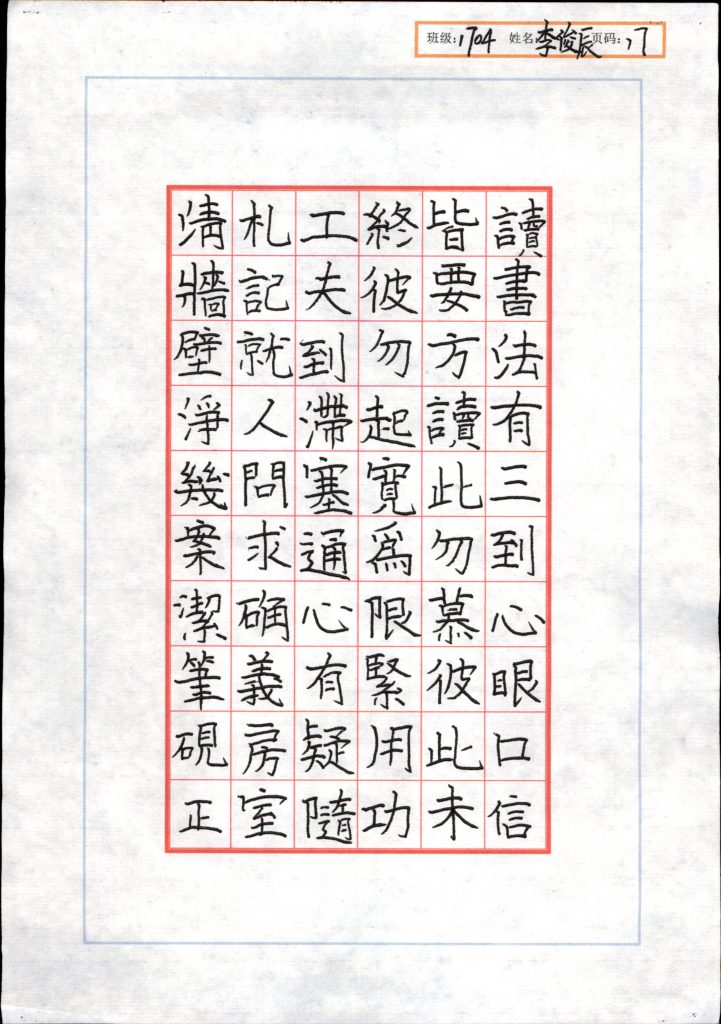 班级：1704 姓名：李俊辰 页码：17
讀書法有三到心眼口信
皆要方讀此勿慕彼此未
終彼勿起寬爲限緊用功
工夫到滯塞通心有疑隨
札記就人問求确義房室
清牆壁淨幾案潔筆硯正